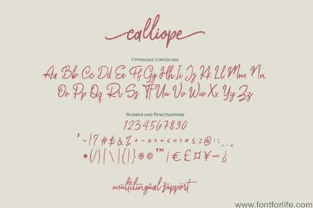 calliope
Uppercase Lowercase
Aa Bb Cc Dd Ee Ff Gg Hh Ii Jj Kk Ll Mm Nn
Oo Pp Qq Rr Ss Tt Uu Vv Ww Xx Yy Zz
Number and Punctuations
1234567890
multilingual support
www.fontforlife.com